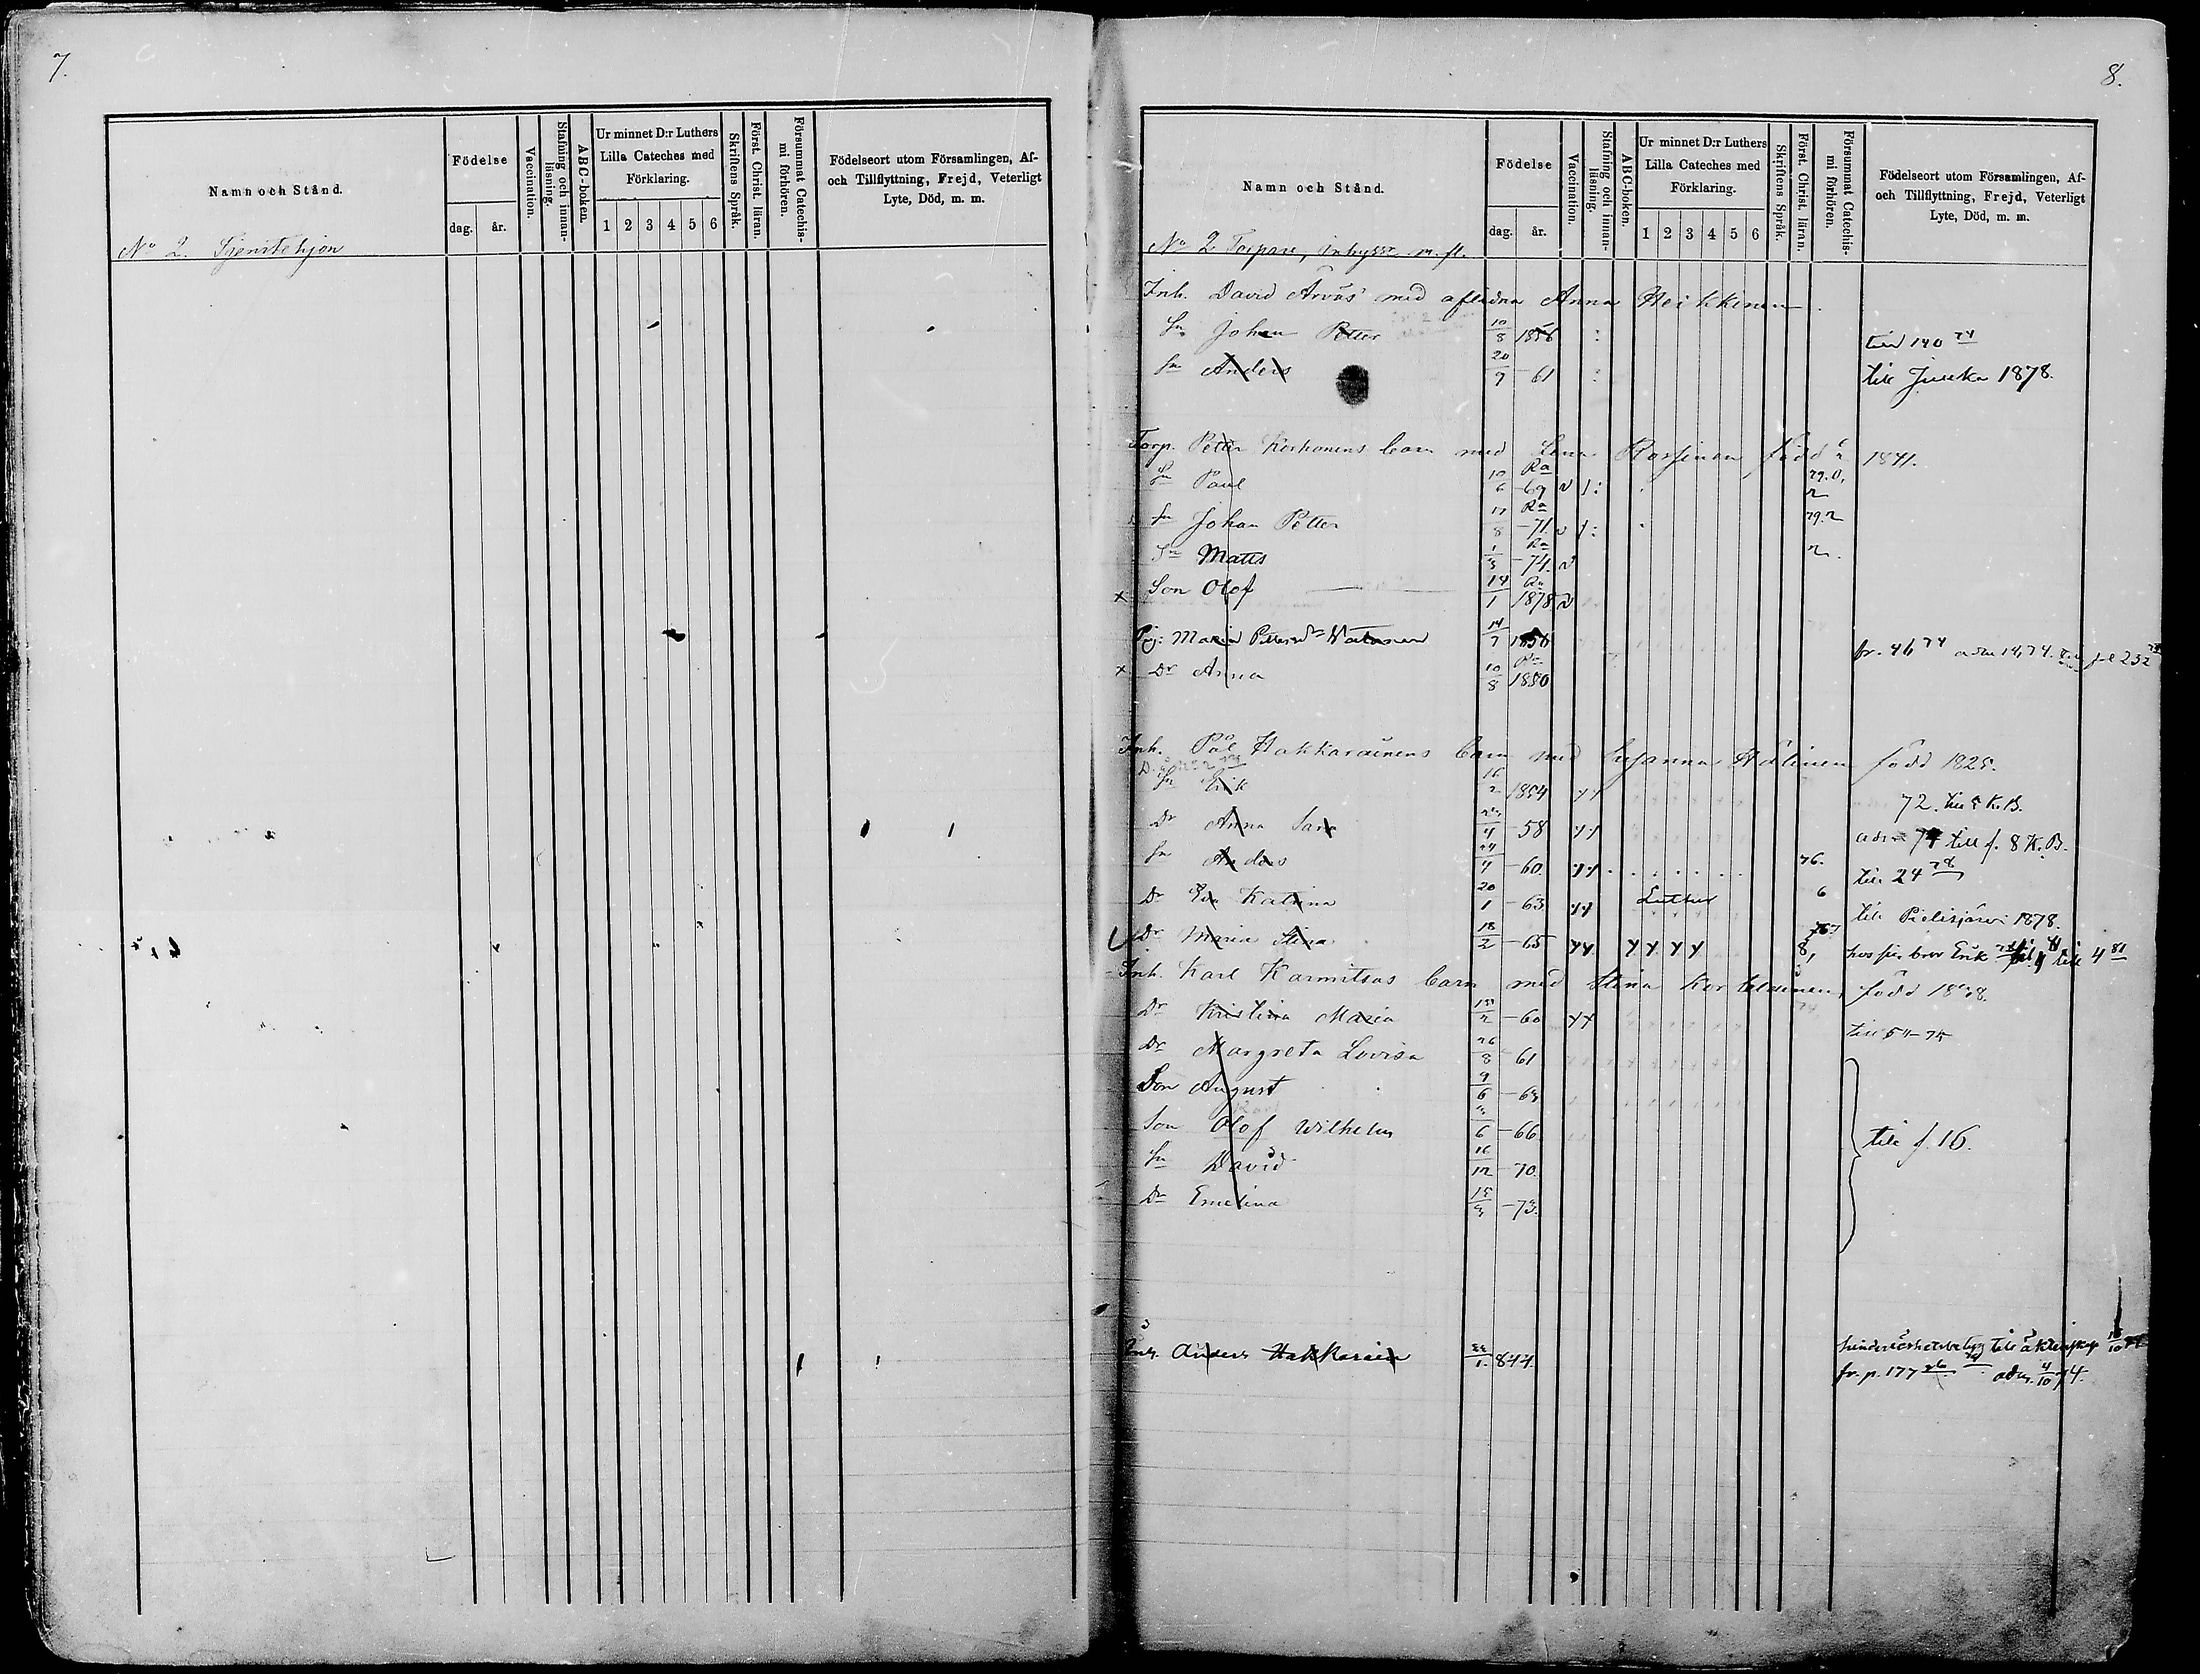 7.
Namn och Stånd.
Födelse
dag.
år.
Vaccination.
Stafning och innan-
läsning.
ABC-boken.
Ur minnet D:r Luthers
Lilla Cateches med
Förklaring.
1 2 3 4 5 6
Skriftens Språk.
Först. Christ. läran.
Försummat Catechis-
mi förhören.
Födelseort utom Församlingen, Af-
och Tillflyttning, Frejd, Veterligt
Lyte, Död, m. m.
No 2. Tjenstehjon
8.
Namn och Stånd.
Födelse
dag.
år.
Vaccination.
Stafning och innan-
läsning.
ABC-boken.
Ur minnet D:r Luthers
Lilla Cateches med
Förklaring.
1 2 3 4 5 6
Skriftens Språk.
Först. Christ. läran.
Försummat Catechis-
mi förhören.
Födelseort utom Församlingen, Af-
och Tillflyttning, Frejd, Veterligt
Lyte, Död, m. m.
No 2 Torpare, inhyses m. fl.
Inh. David Arvas med aflidna Anna Heikkinen
Sn Johan Petter 10/8 1856 till 140 74
Sn Anders 20/9 61 till Juuka 1878.
Torp. Petter Korhonens barn med Lena född 1841.
Sn Paul 10/6 -69
Sn Johan Petter 17/8 -71
Sn Matts 1/3 -74
x Son Olof 14/1 1878
Maria 14/7 1856 fr. 46 74
x Dr Anna 10/8 1880
Inh. Pål Hakkarainens barn med Susanna född 1825.
Sn Erik 16/2 1854 72. K. B.
Dr Anna Sara 4 58 till f. 8 K. B.
Sn Anders 24/4 -60 76. till 24 78
Dr Eva Katrina 20/1 -63 Luther 6 till Pielisjärvi 1878.
Dr Maria Stina 18/2 -65 Y Y Y Y Y Y 8, hos sin bror Erik till 4 81
Inh. Karl Karmitsas barn med Stina född
Dr Kristina Maria 2 -60 till 54-75
Dr Margreta Lovisa 26/8 61
Son August 9/6
Son Olof Wilhelm 6 -66 till f. 16.
Sn David 16/12 70.
Dr Emelina -73.
Anders Hakkarain 1. 844. till äktenskap
fr. p. 177 adm. 4/10 74.